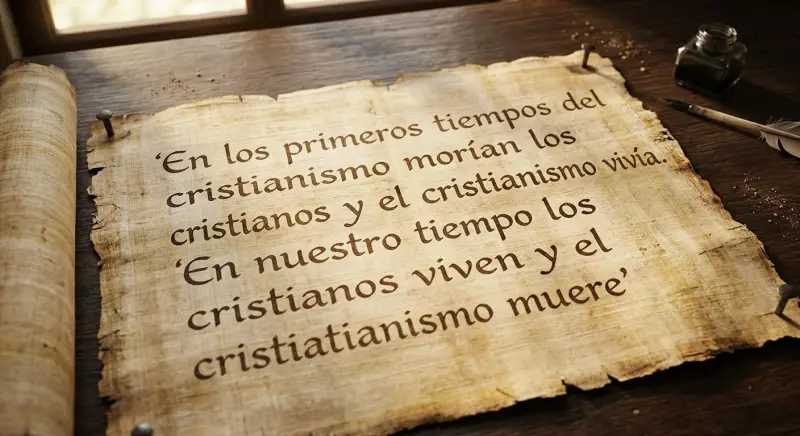 ‘En los primeros tiempos del
cristianismo morían los
cristianos y el cristianismo vivía.
‘En nuestro tiempo los
cristianos viven y el
cristiatianismo muere’